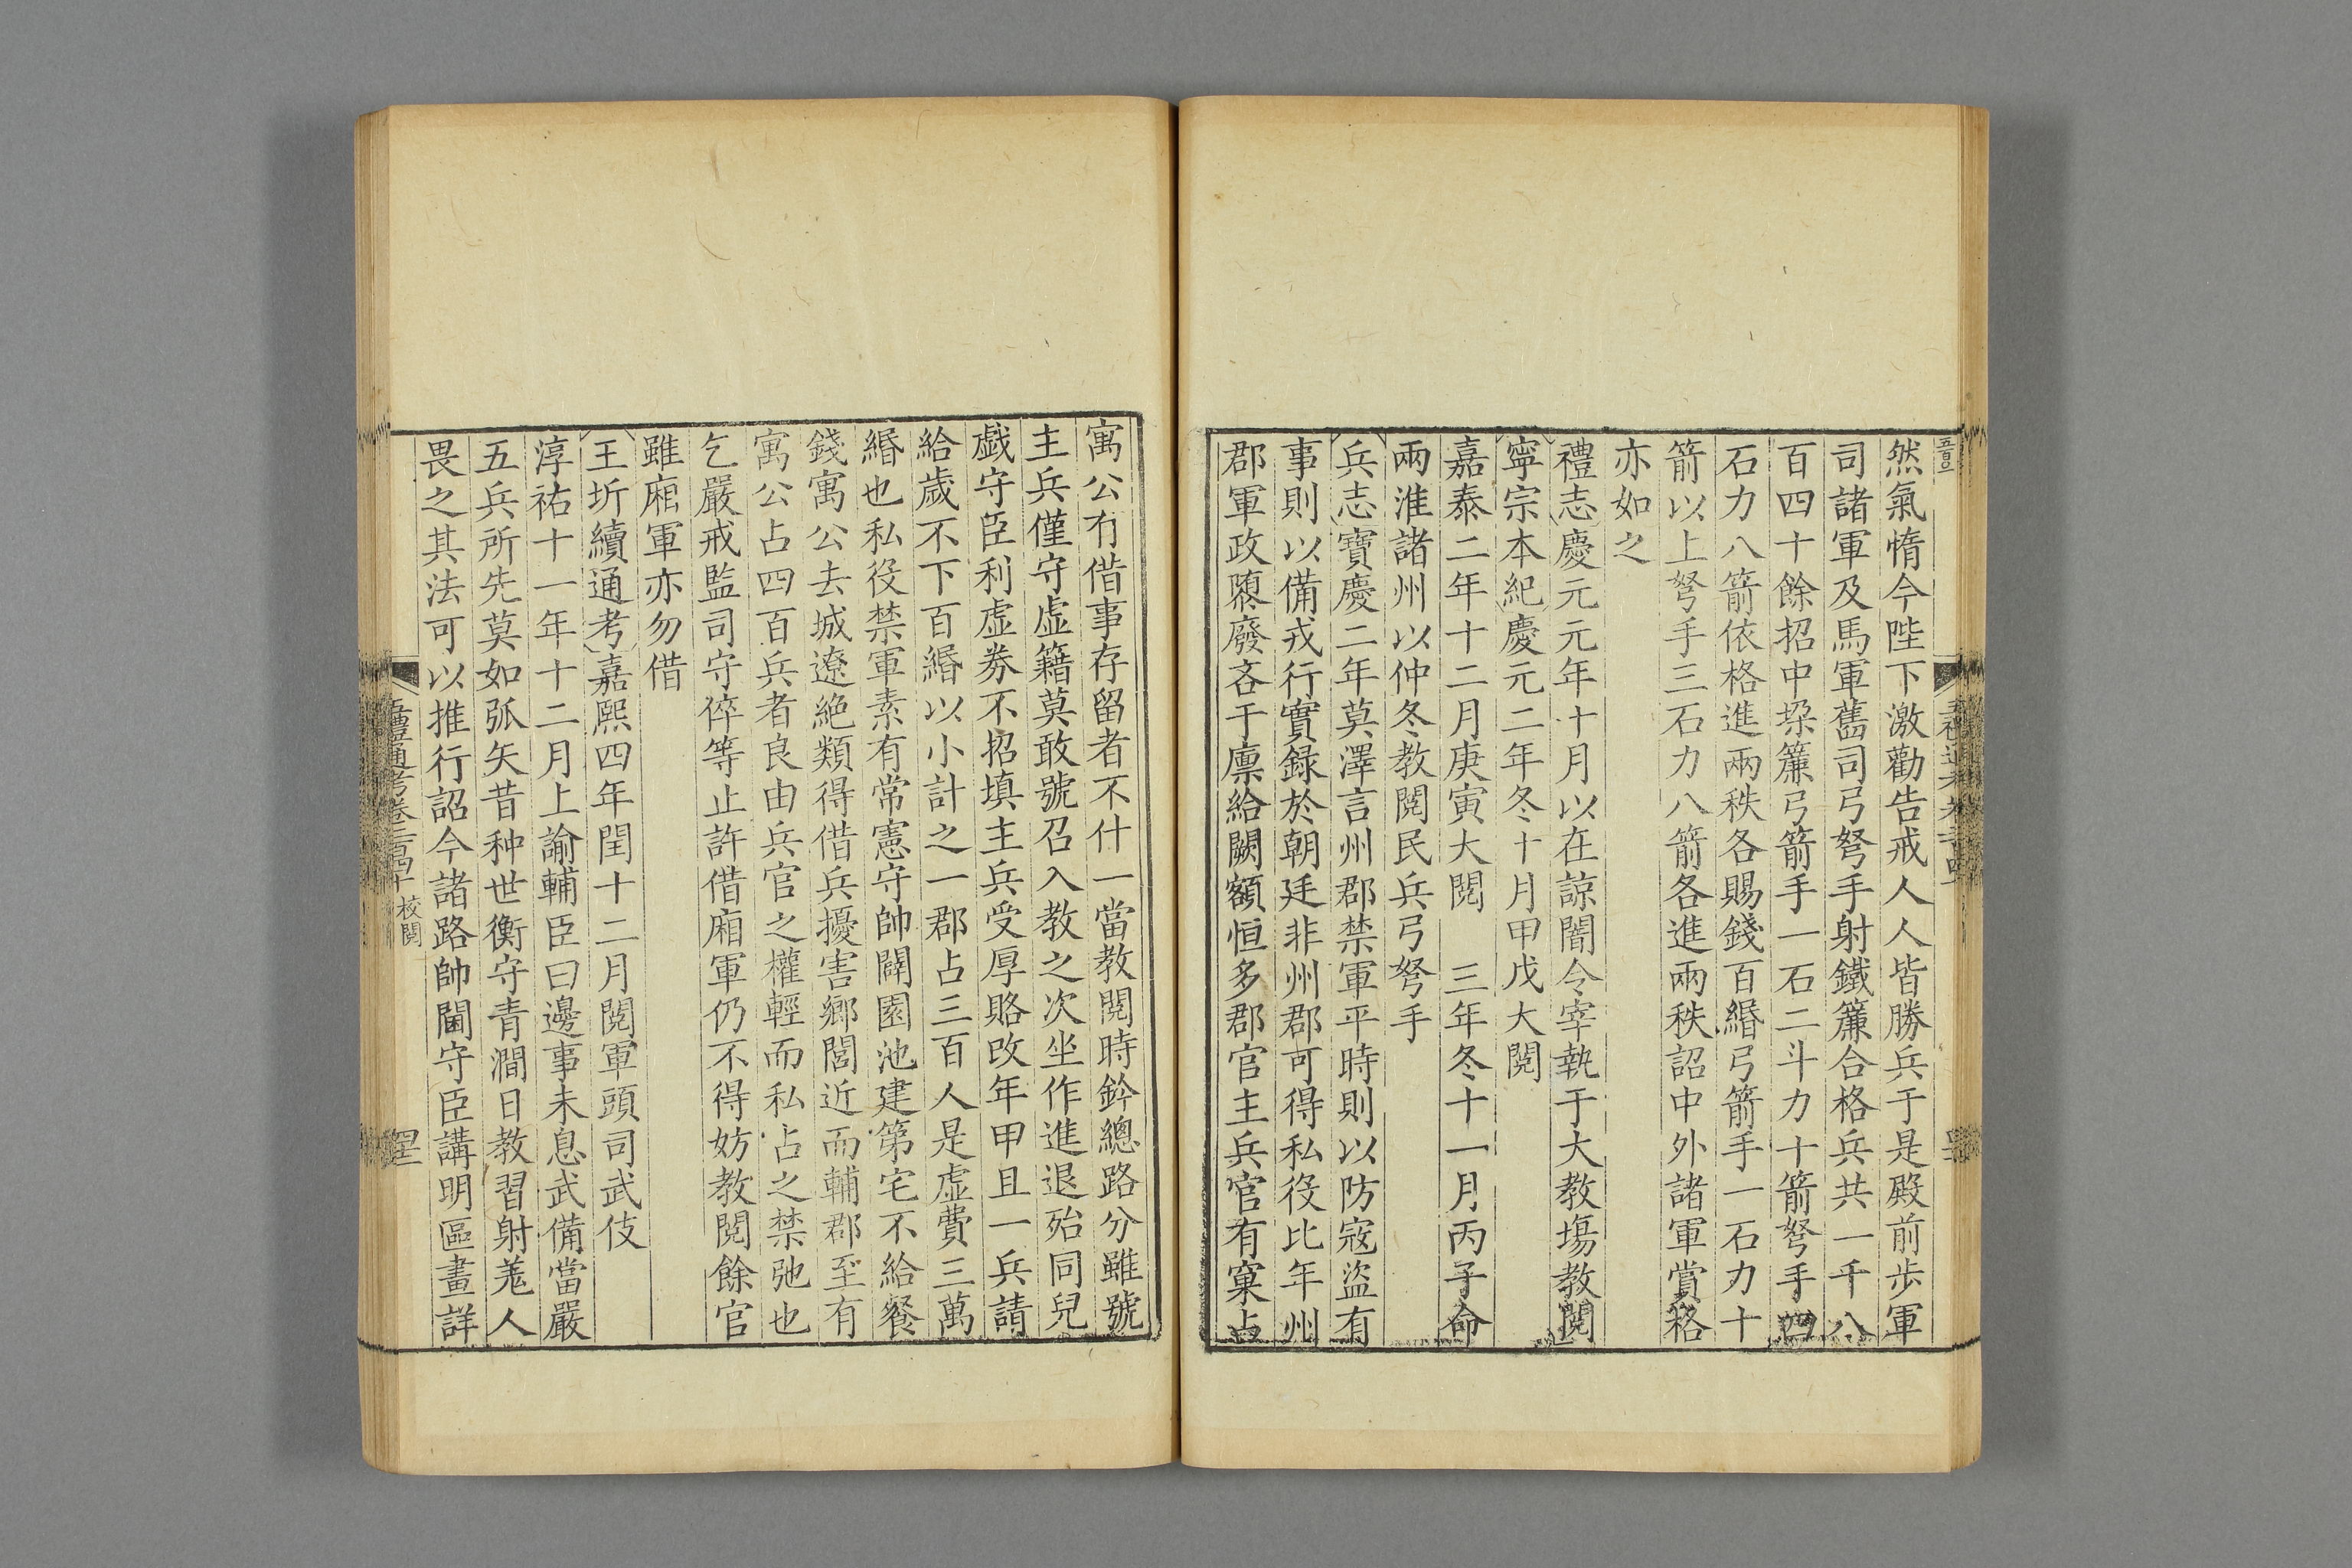 然氣惰今陛下激勸告戒人人皆勝兵于是殿前步軍
司諸軍及馬軍舊司弓弩手射鐵簾合格兵共一千八
百四十餘招中垜簾弓箭手一石二斗力十箭弩手四
石力八箭依格進兩秩各賜錢百緡弓箭手一石力十
箭以上弩手三石力八箭各進兩秩詔中外諸軍賞格
亦如之
禮志慶元元年十月以在諒闇令宰執于大教場教閱
寧宗本紀慶元二年冬十月甲戌大閱
嘉泰二年十二月庚寅大閱　三年冬十一月丙子命
兩淮諸州以仲冬教閱民兵弓弩手
兵志寶慶二年莫澤言州郡禁軍平時則以防寇盜有
事則以備戎行實録於朝廷非州郡可得私役比年州
郡軍政隳廢吝于廪給闕額恒多郡官主兵官有窠占
寓公有借事存留者不什一當教閱時鈐總路分雖號
主兵僅守虛籍莫敢號召入教之次坐作進退殆同兒
戯守臣利虛券不招填主兵受厚賂改年甲且一兵請
給歲不下百緡以小計之一郡占三百人是虛費三萬
緡也私役禁軍素有常憲守帥闢園池建第宅不給餐
錢寓公去城遼絶類得借兵擾害鄉閭近而輔郡至有
寓公占四百兵者良由兵官之權輕而私占之禁弛也
乞嚴戒監司守倅等止許借廂軍仍不得妨教閱餘官
雖廂軍亦勿借
王圻續通考嘉熙四年閏十二月閱軍頭司武伎
淳祐十一年十二月上諭輔臣曰邊事未息武備當嚴
五兵所先莫如弧矢昔种世衡守青澗日教習射羗人
畏之其法可以推行詔今諸路帥閫守臣講明區畫詳
五禮通考卷二百四十 校閱